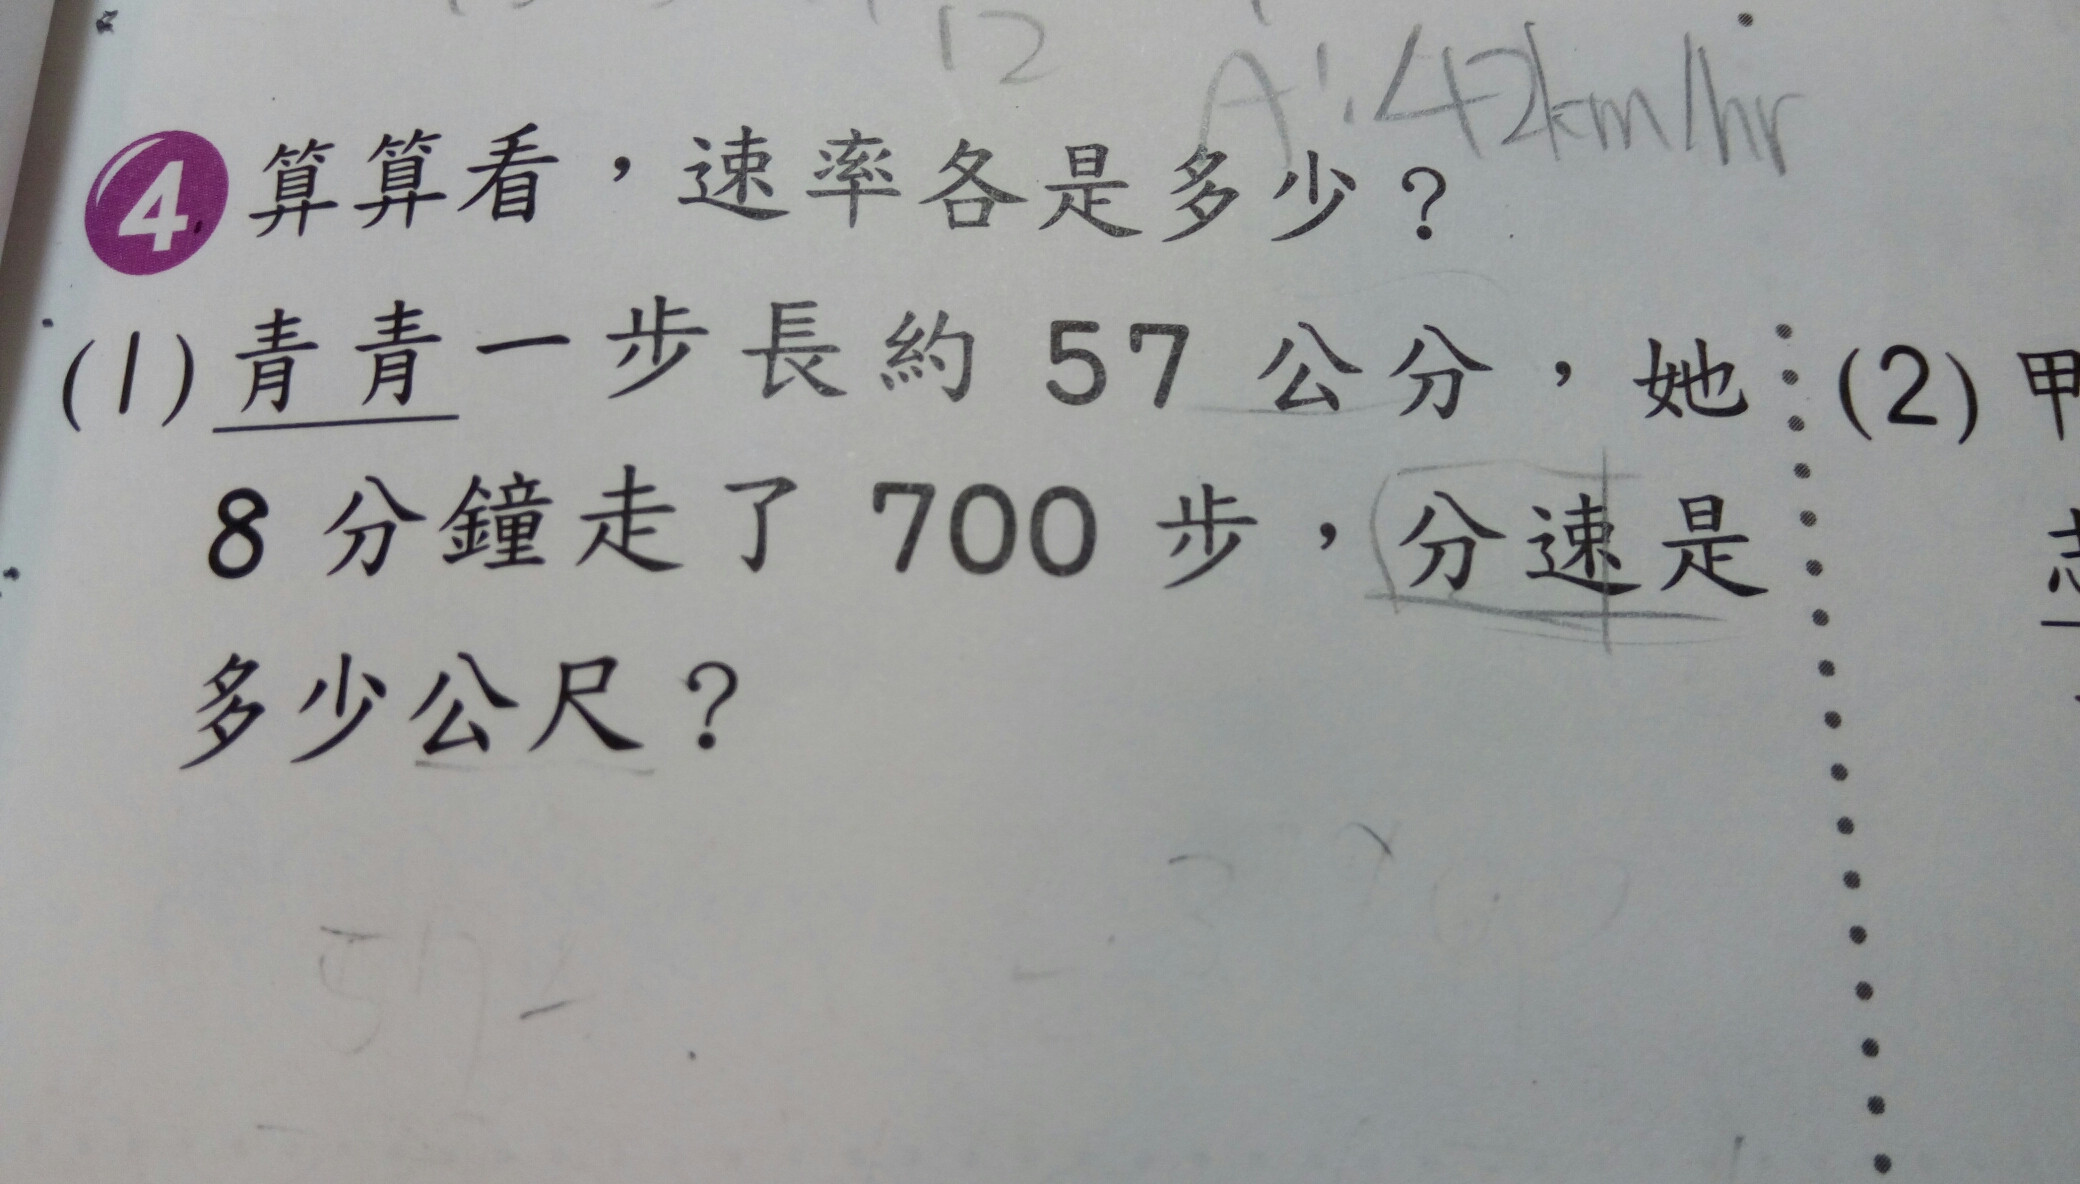 12
A:42km/hr
4 算算看，速率各是多少？
(1) 青青一步長約 57 公分，她
8 分鐘走了 700 步，分速是
多少公尺？
(2) 甲
57